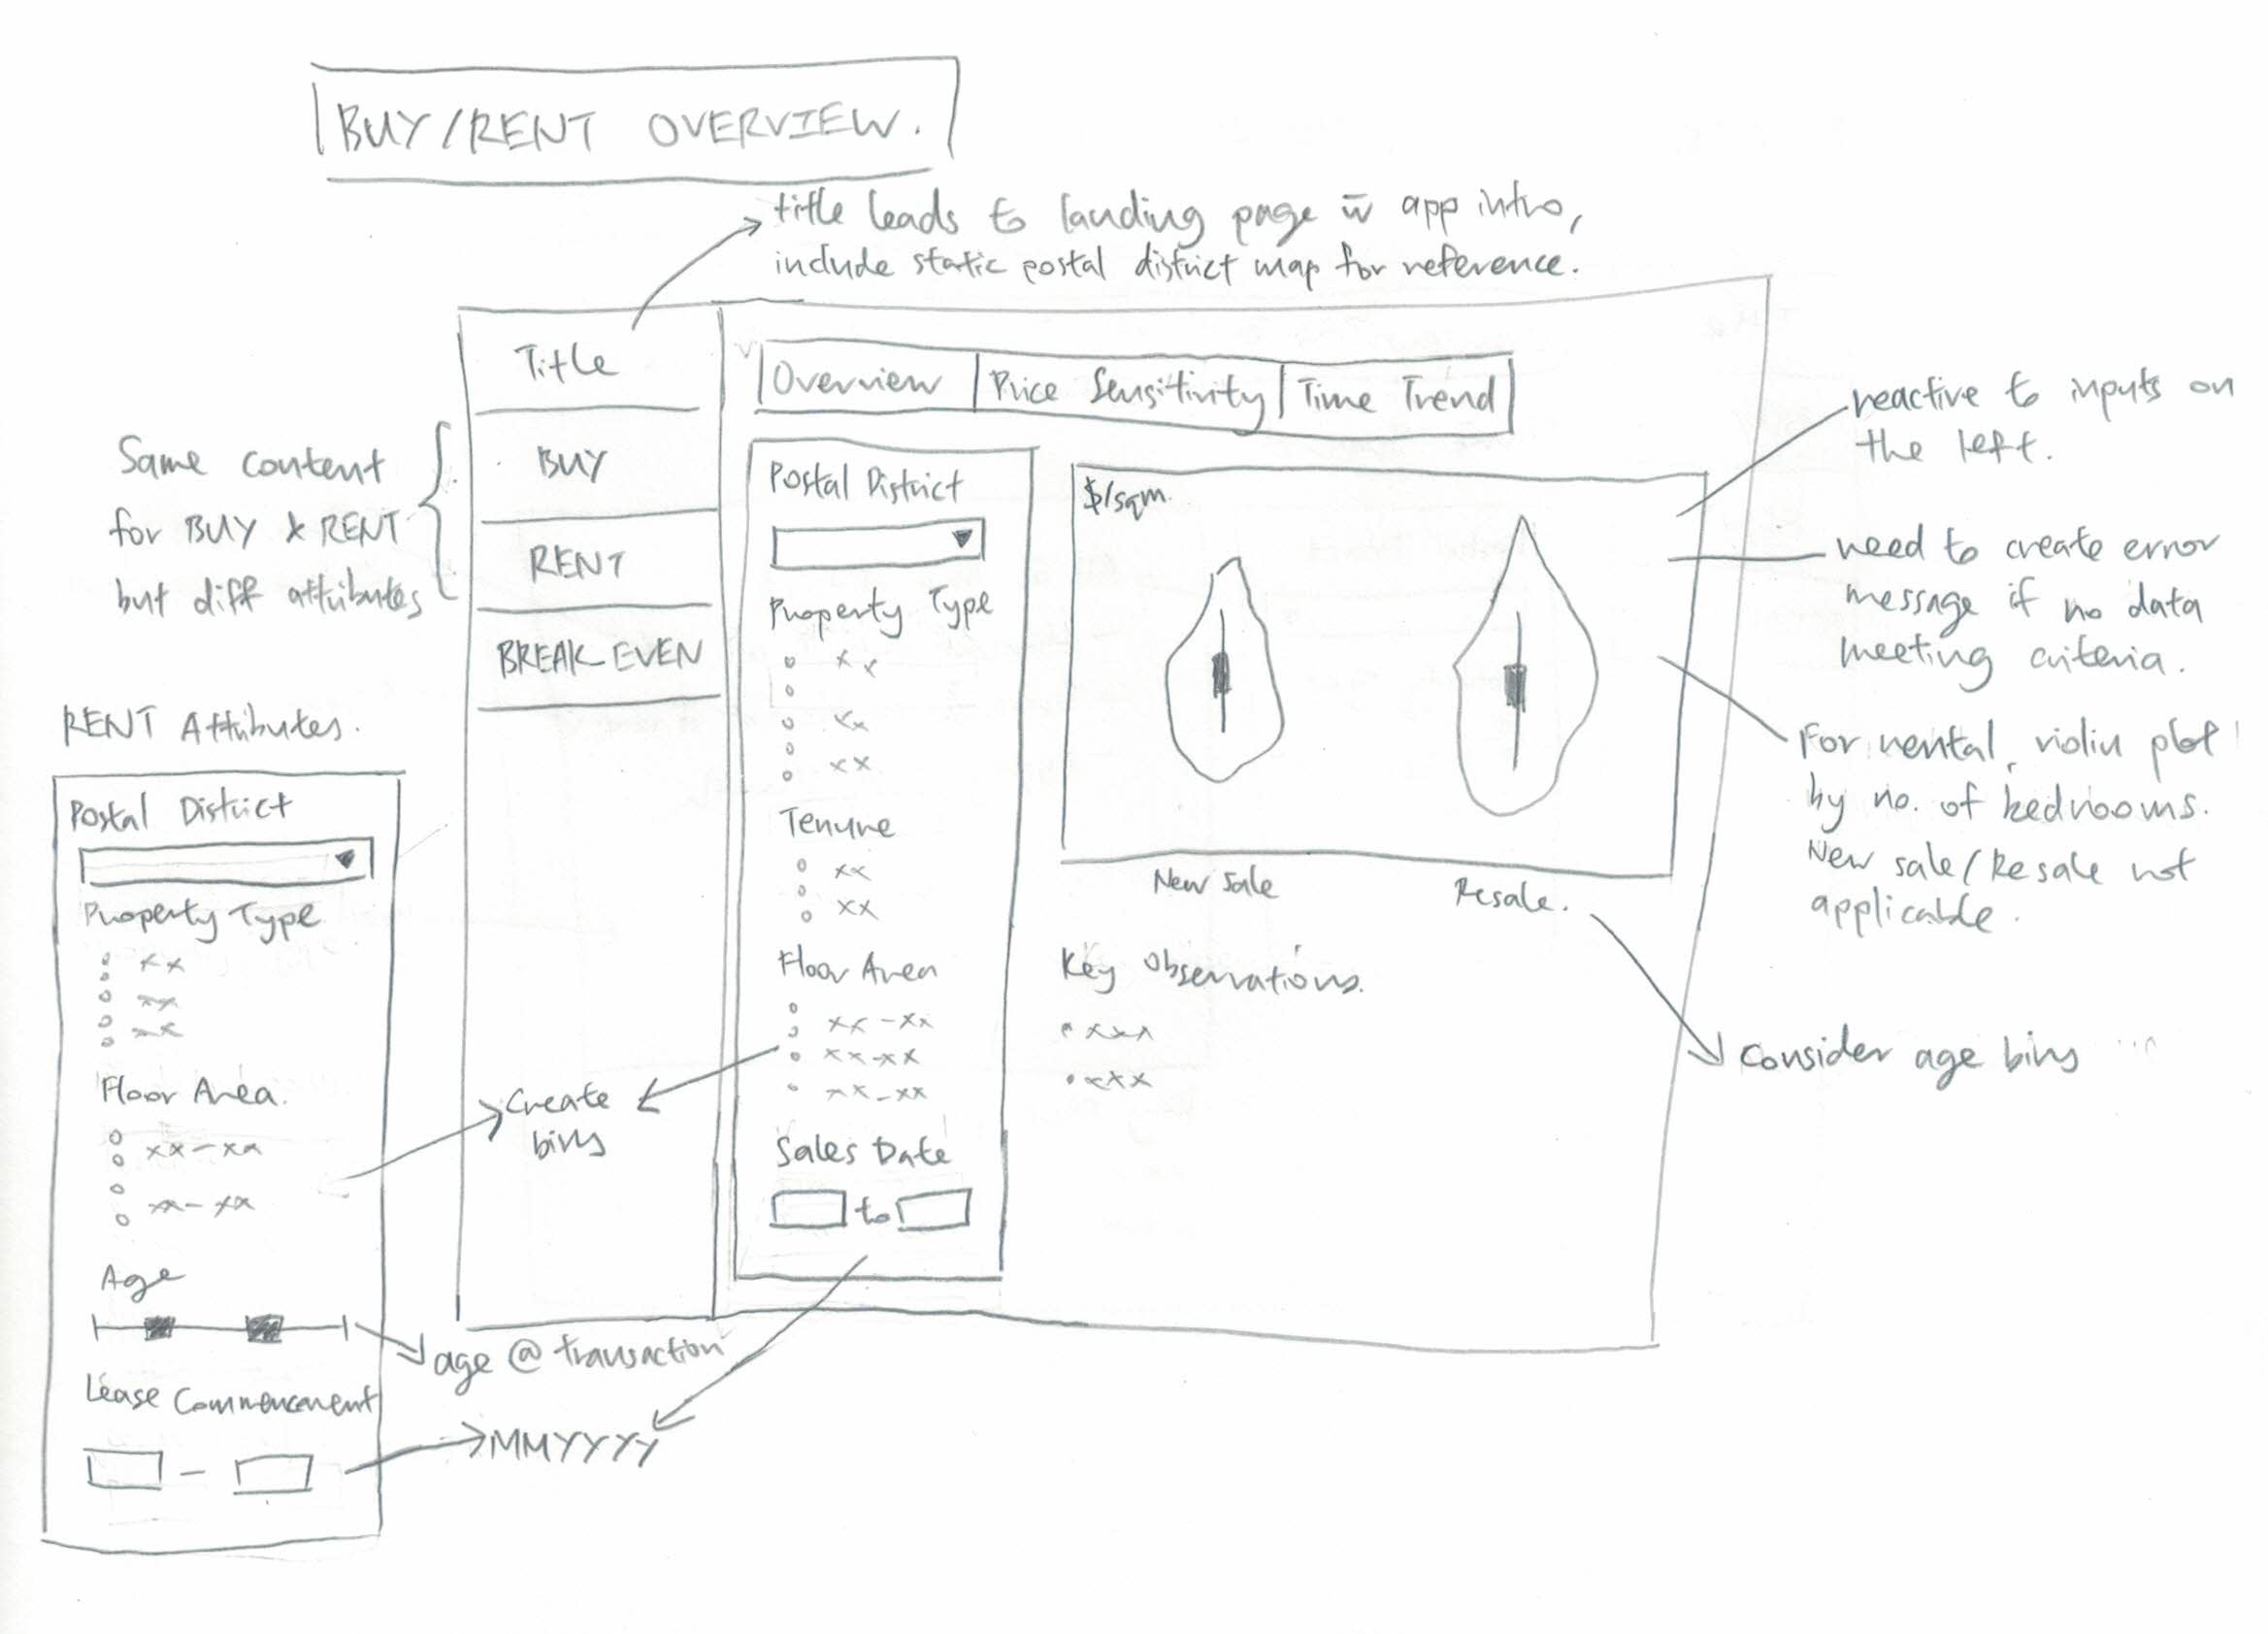 BUY/RENT OVERVIEW.
title leads to landing page w̄ app intro,
include static postal district map for reference.
Title
BUY
RENT
BREAK EVEN
Same content
for BUY & RENT
but diff attributes
Overview
Price Sensitivity
Time Trend
Postal District
Property Type
xx
xx
xx
Tenure
xx
xx
Floor Area
xx-xx
xx-xx
xx-xx
Sales Date
to
$/sqm.
New Sale
Resale.
Key Observations.
• xxx
• xxx
reactive to inputs on
the left.
need to create error
message if no data
meeting criteria.
For rental, violin plot
by no. of bedrooms.
New sale/Resale not
applicable.
Consider age bins
RENT Attributes.
Postal District
Property Type
xx
xx
xx
Floor Area.
xx-xx
xx-xx
Age
Lease Commencement
-
Create
bins
age @ transaction
MMYYYY